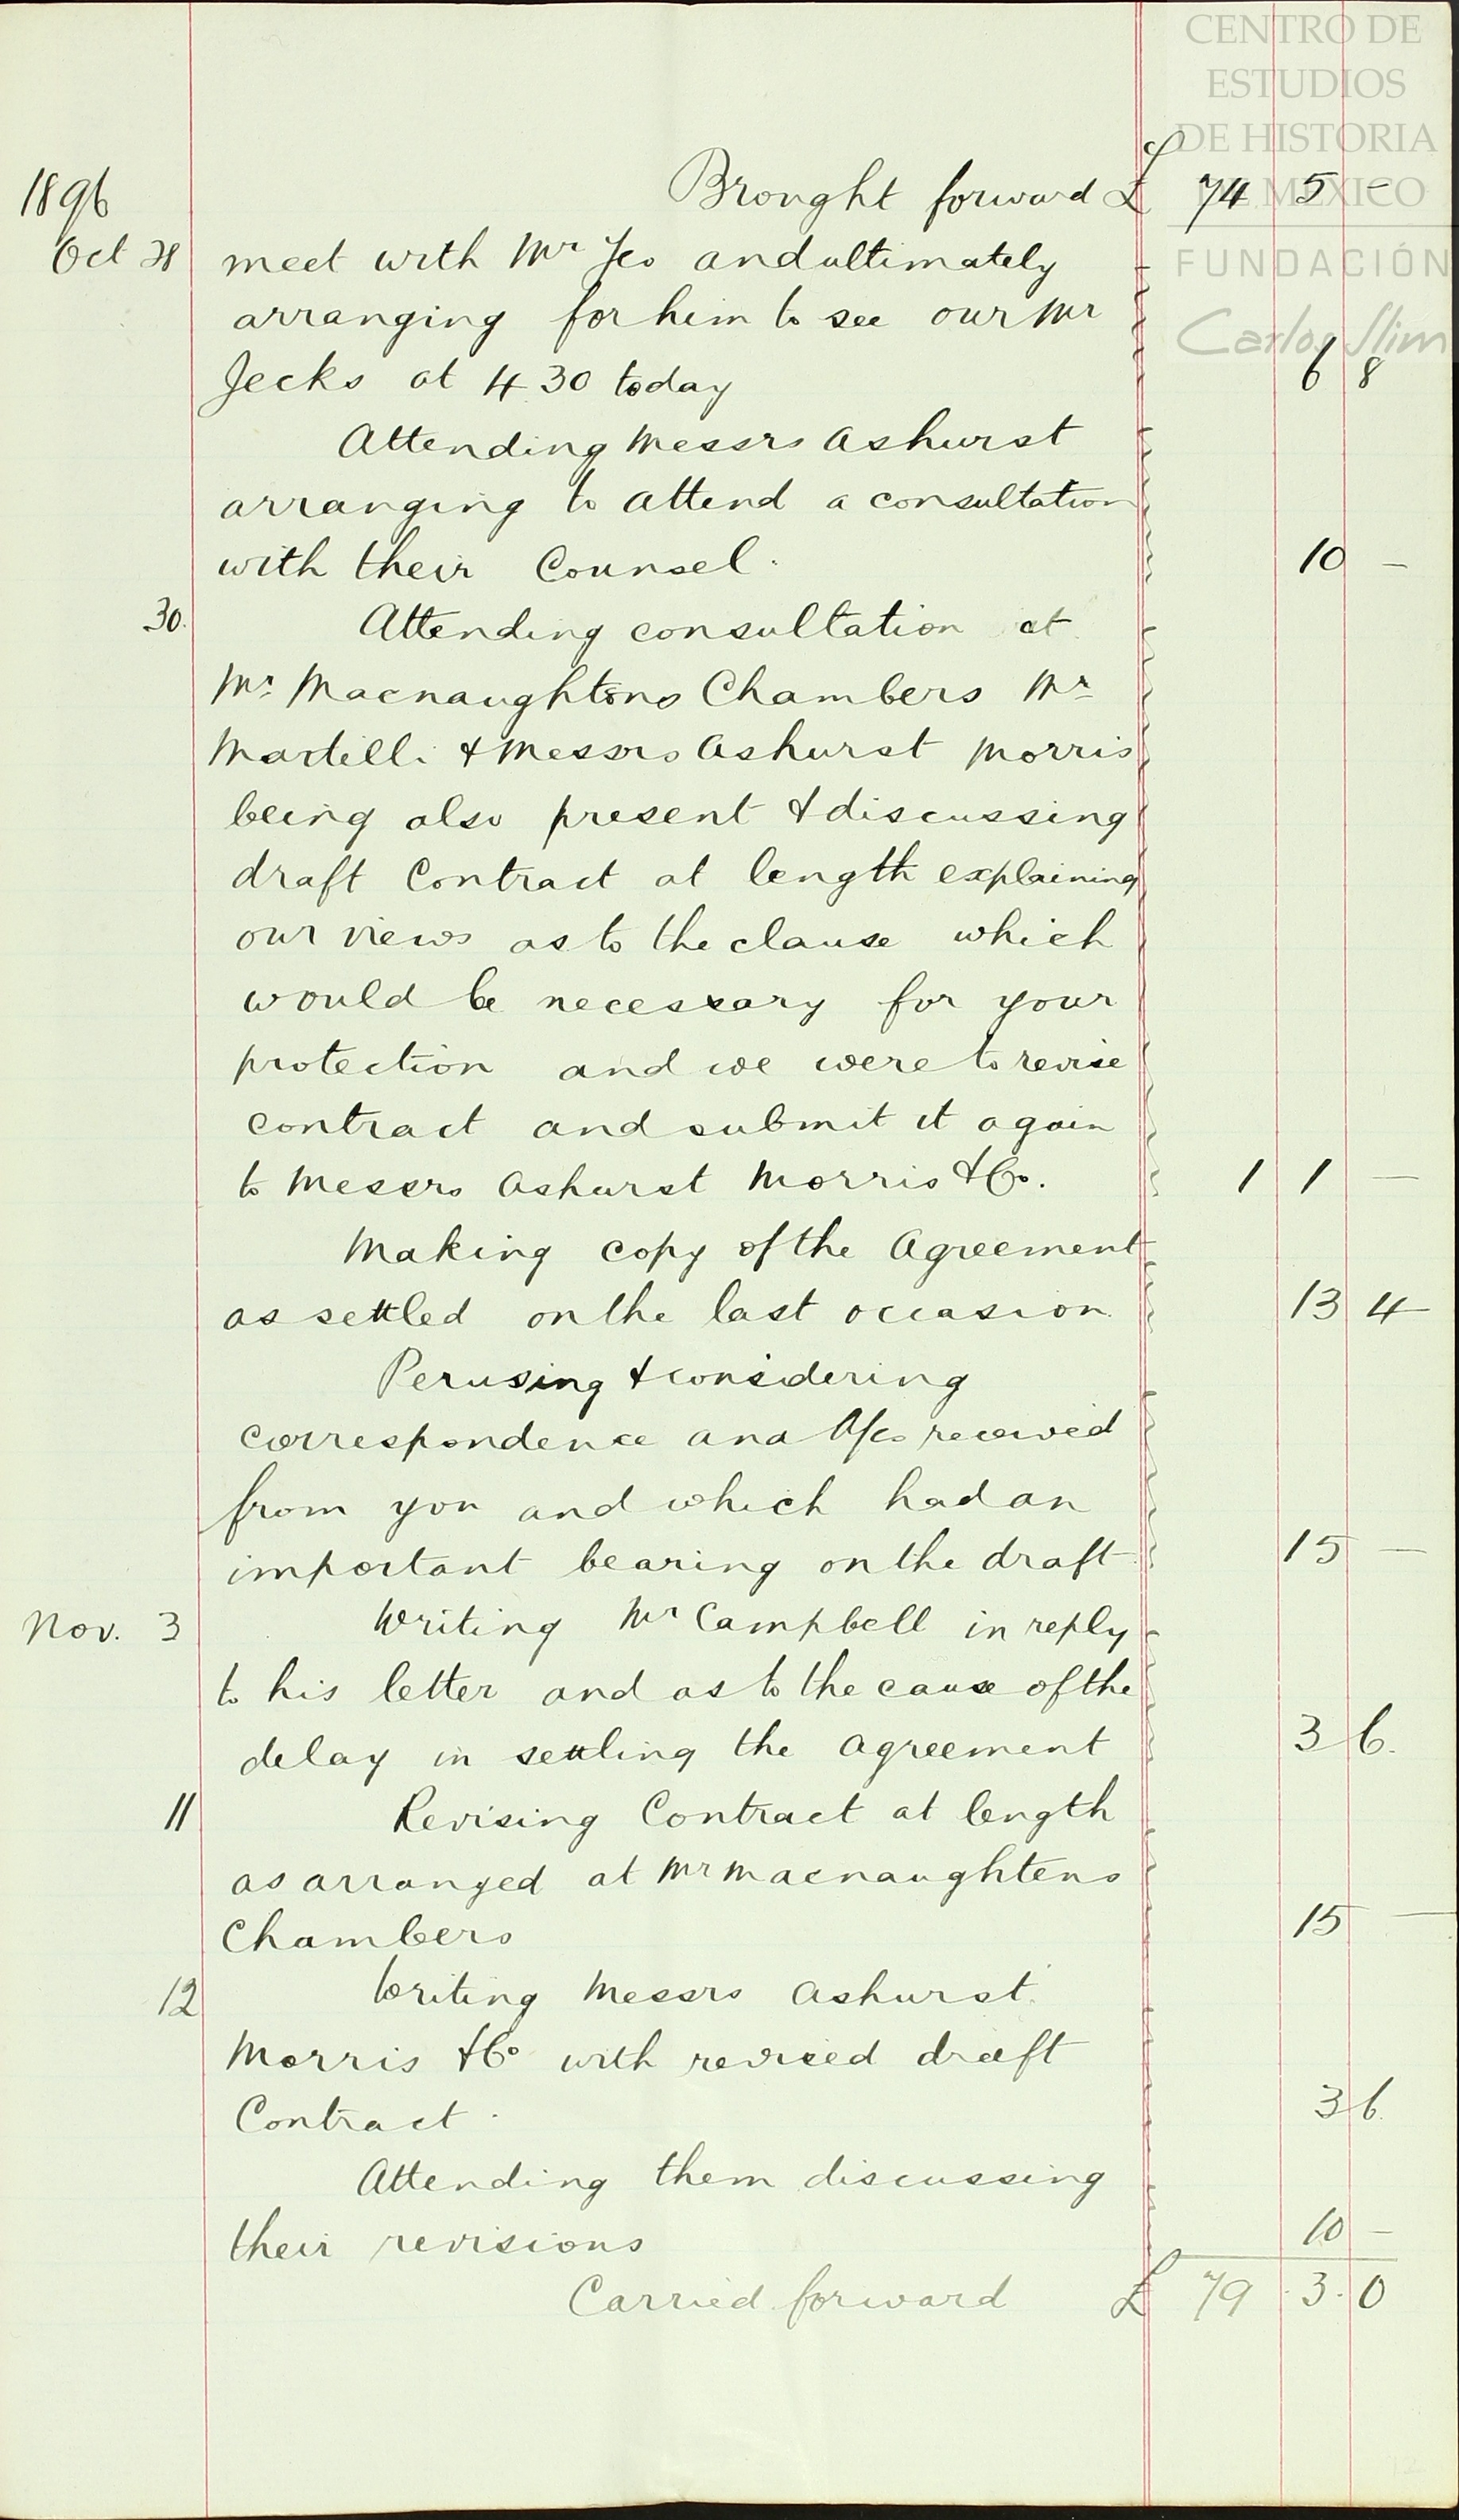 CENTRO DE
ESTUDIOS
DE HISTORIA
DE MÉXICO
FUNDACIÓN
Carlos Slim
1896 Brought forward £ 74 5 -
Oct 28 meet with Mr Yeo and ultimately
arranging for him to see our Mr
Jecks at 4.30 today 6 8
Attending Messrs Ashurst
arranging to attend a consultation
with their Counsel. 10 -
30. Attending consultation at
Mr. Macnaughtens Chambers Mr
Martelli & Messrs Ashurst Morris
being also present & discussing
draft Contract at length explaining
our views as to the clause which
would be necessary for your
protection and we were to revise
contract and submit it again
to Messrs Ashurst Morris & Co. 1 1 -
Making copy of the Agreement
as settled on the last occasion 13 4
Perusing & considering
correspondence and A/cs received
from you and which had an
important bearing on the draft 15 -
Nov. 3 Writing Mr Campbell in reply
to his letter and as to the cause of the
delay in settling the agreement 3 6.
11 Revising Contract at length
as arranged at Mr Macnaughtens
Chambers 15 -
12 Writing Messrs Ashurst
Morris & Co with revised draft
Contract. 3 6.
Attending them discussing
their revisions 10 -
Carried forward £ 79 . 3 . 0